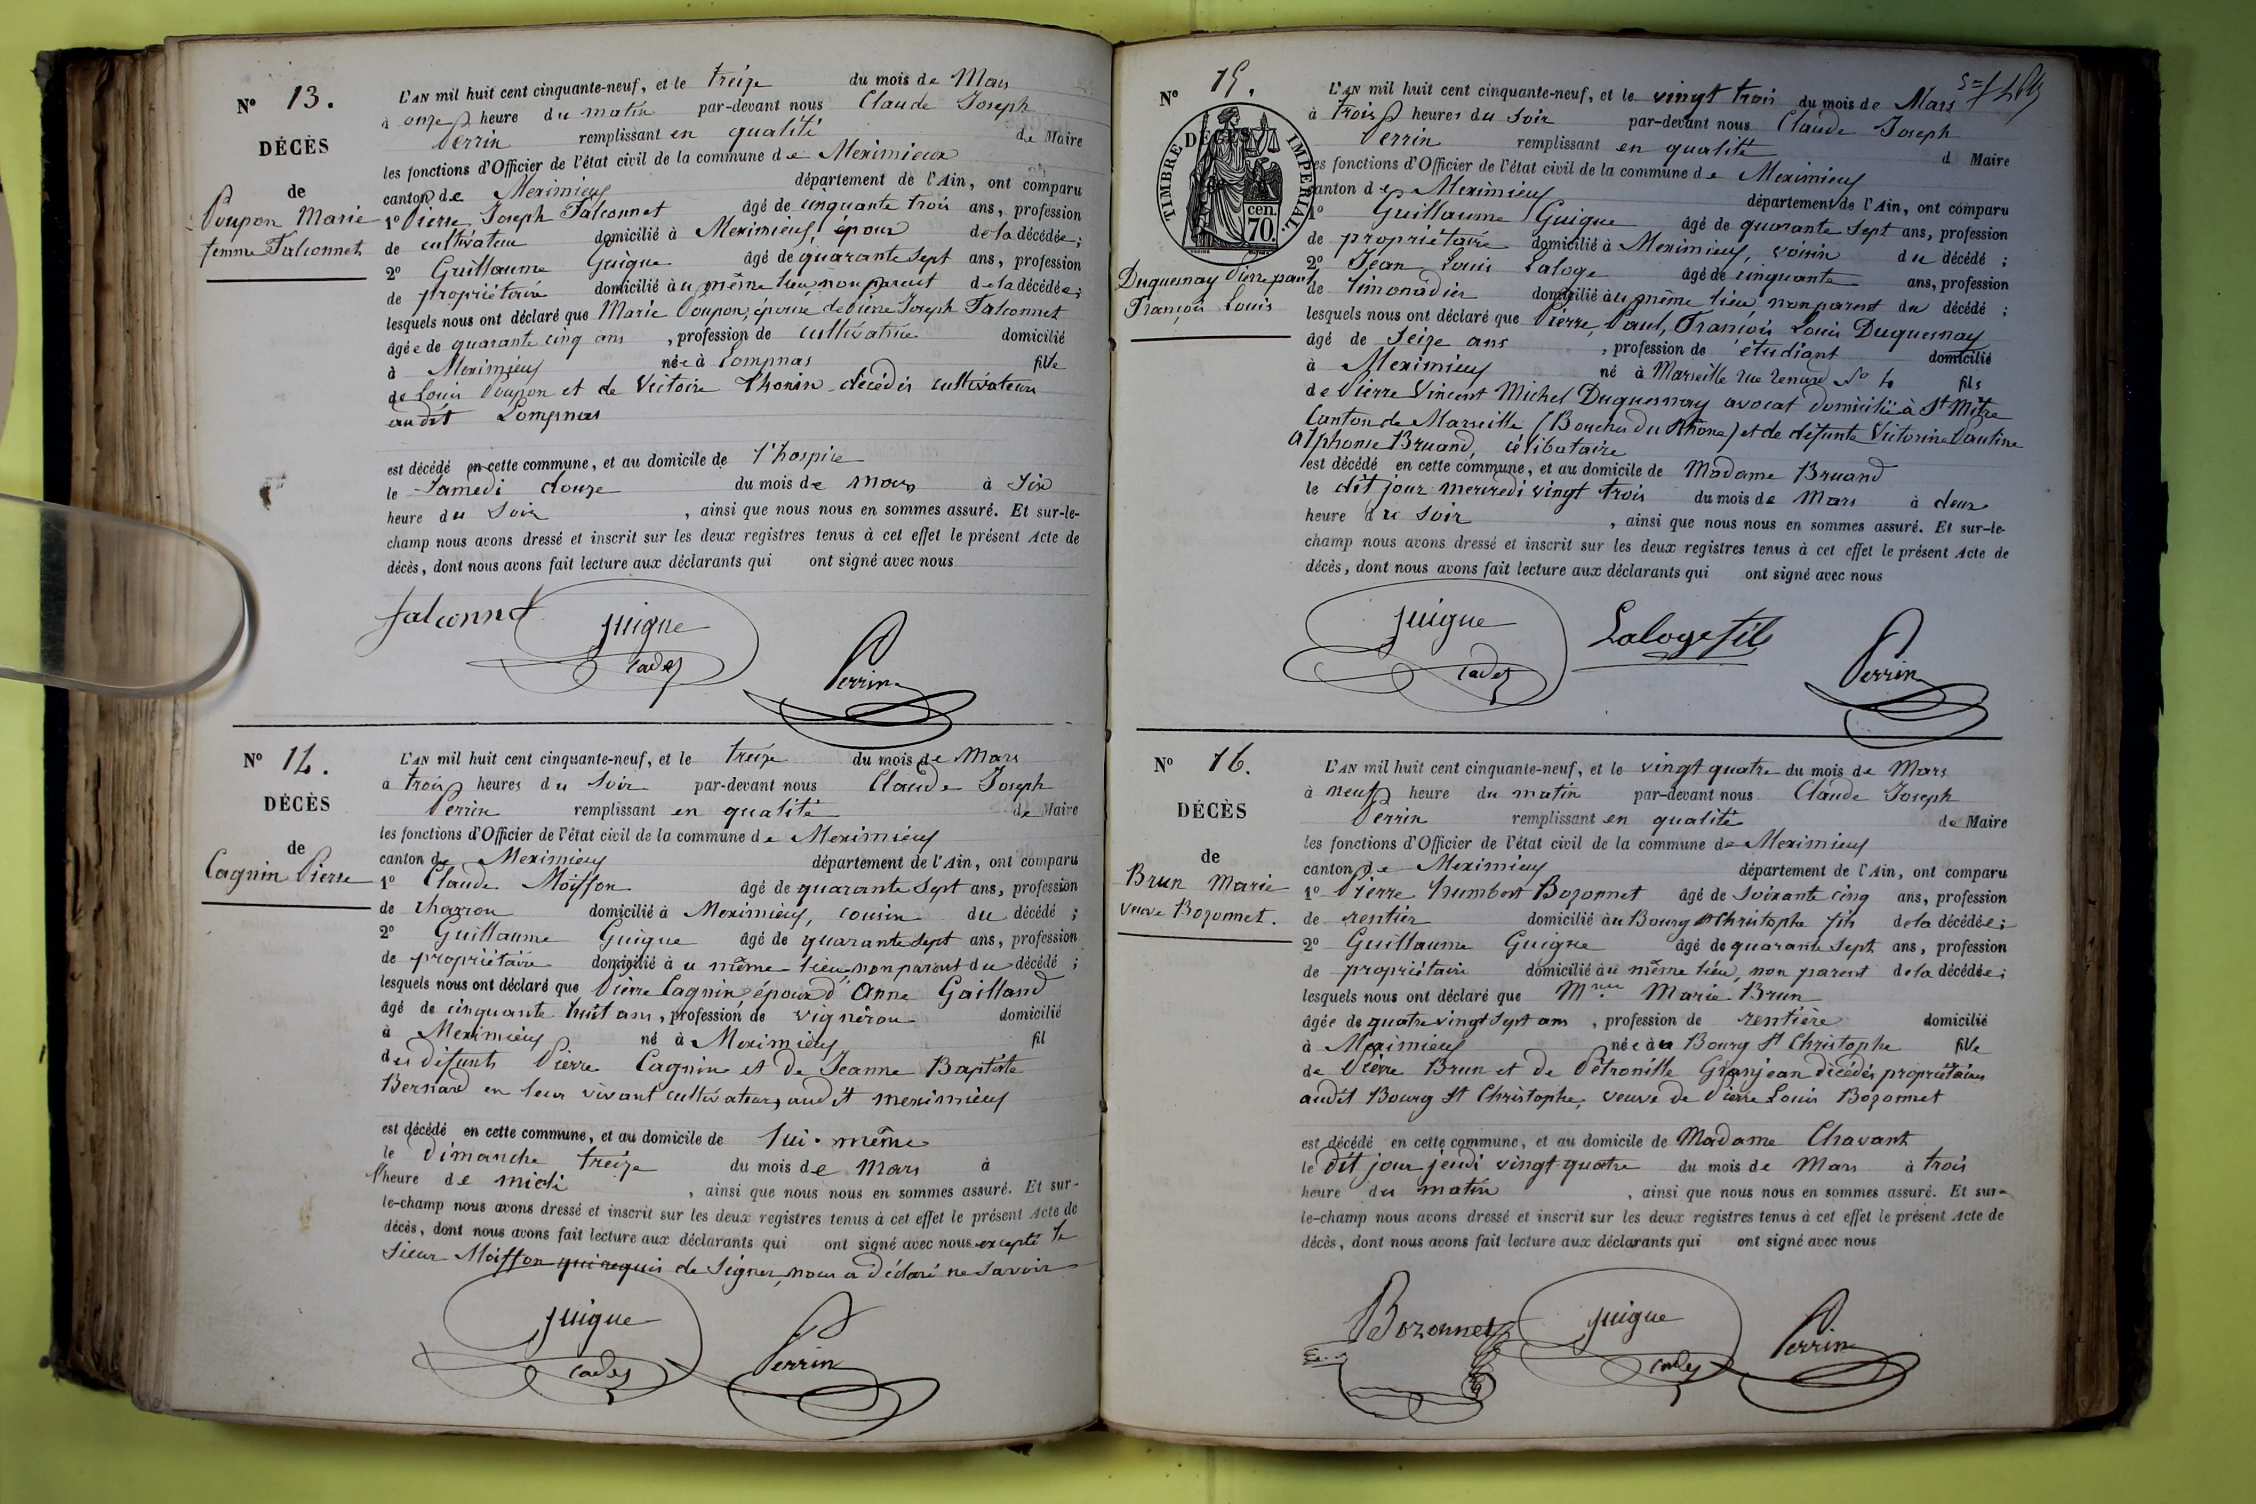 N° 13.
DÉCÈS
de
Poupon Marie
femme Falconnet
L'AN mil huit cent cinquante-neuf, et le treize du mois de Mars
à onze heure du matin par-devant nous Claude Joseph
Perrin remplissant en qualité de Maire
les fonctions d'Officier de l'état civil de la commune de Meximieux
canton de Meximieux département de l'Ain, ont comparu
1° Pierre Joseph Falconnet âgé de cinquante trois ans, profession
de cultivateur domicilié à Meximieux, époux de la décédée;
2° Guillaume Guigue âgé de quarante sept ans, profession
de propriétaire domicilié au même lieu non parent de la décédée;
lesquels nous ont déclaré que Marie Poupon, épouse de Pierre Joseph Falconnet
âgée de quarante cinq ans, profession de cultivatrice domicilié
à Meximieux née à Lompnas fille
de Louis Poupon et de Victoire Thonin décédés cultivateurs
audit Lompnas
est décédé en cette commune, et au domicile de l'hospice
le Samedi douze du mois de mars à Six
heure du Soir, ainsi que nous nous en sommes assuré. Et sur-le-
champ nous avons dressé et inscrit sur les deux registres tenus à cet effet le présent Acte de
décès, dont nous avons fait lecture aux déclarants qui ont signé avec nous
falconnet guigue cadet Perrin
N° 14.
DÉCÈS
de
Cagnin Pierre
L'AN mil huit cent cinquante-neuf, et le treize du mois de Mars
à trois heures du Soir par-devant nous Claude Joseph
Perrin remplissant en qualité de Maire
les fonctions d'Officier de l'état civil de la commune de Meximieux
canton de Meximieux département de l'Ain, ont comparu
1° Claude Moiffon âgé de quarante Sept ans, profession
de charron domicilié à Meximieux, cousin du décédé;
2° Guillaume Guigue âgé de quarante sept ans, profession
de propriétaire domicilié au même lieu non parent du décédé;
lesquels nous ont déclaré que Pierre Cagnin, époux d'Anne Gailland
âgé de cinquante huit ans, profession de vigneron domicilié
à Meximieux né à Meximieux fil
des défunts Pierre Cagnin et de Jeanne Baptiste
Bernard en leur vivant cultivateurs audit meximieux
est décédé en cette commune, et au domicile de lui-même
le Dimanche treize du mois de Mars à
l'heure de midi, ainsi que nous nous en sommes assuré. Et sur-
le-champ nous avons dressé et inscrit sur les deux registres tenus à cet effet le présent Acte de
décès, dont nous avons fait lecture aux déclarants qui ont signé avec nous excepté le
Sieur Moiffon qui requis de Signer, nous a déclaré ne Savoir
guigue cadet Perrin
N° 15.
DÉCÈS
TIMBRE IMPÉRIAL.
cen.
70.
Duquesnay Pierre paul
François Louis
L'AN mil huit cent cinquante-neuf, et le vingt trois du mois de Mars
à trois heures du Soir par-devant nous Claude Joseph
Perrin remplissant en qualité d Maire
les fonctions d'Officier de l'état civil de la commune de Meximieux
canton de Meximieux département de l'Ain, ont comparu
1° Guillaume Guigue âgé de quarante sept ans, profession
de propriétaire domicilié à Meximieux, voisin du décédé;
2° Jean Louis Laloge âgé de cinquante ans, profession
de limonadier domicilié au même lieu, non parent du décédé;
lesquels nous ont déclaré que Pierre, Paul, François Louis Duquesnay
âgé de Seize ans, profession de étudiant domicilié
à Meximieux né à Marseille rue Renard N° fils
de Pierre Vincent Michel Duquesnay avocat domicilié à St Mitre
Canton de Marseille (Bouches du Rhône) et de défunte Victorine Pauline
Alphonse Bruand, célibataire
est décédé en cette commune, et au domicile de Madame Bruand
le dit jour mercredi vingt trois du mois de Mars à deux
heure du Soir, ainsi que nous nous en sommes assuré. Et sur-le-
champ nous avons dressé et inscrit sur les deux registres tenus à cet effet le présent Acte de
décès, dont nous avons fait lecture aux déclarants qui ont signé avec nous
guigue cadet Laloge fils Perrin
N° 16.
DÉCÈS
de
Brun Marie
veuve Bozonnet.
L'AN mil huit cent cinquante-neuf, et le vingt quatre du mois de Mars
à neuf heure du matin par-devant nous Claude Joseph
Perrin remplissant en qualité de Maire
les fonctions d'Officier de l'état civil de la commune de Meximieux
canton de Meximieux département de l'Ain, ont comparu
1° Pierre humbert Bozonnet âgé de Soixante cinq ans, profession
de rentier domicilié au Bourg St Christophe fils de la décédée;
2° Guillaume Guigue âgé de quarante Sept ans, profession
de propriétaire domicilié au même lieu, non parent de la décédée;
lesquels nous ont déclaré que Marie Brun
âgée de quatre vingt Sept ans, profession de rentière domicilié
à Meximieux née à u Bourg St Christophe fille
de Pierre Brun et de Pétronille Granjean décédés propriétaires
audit Bourg St Christophe, veuve de Pierre Louis Bozonnet
est décédé en cette commune, et au domicile de Madame Chavant
le dit jour jeudi vingt quatre du mois de Mars à trois
heure du matin, ainsi que nous nous en sommes assuré. Et sur-
le-champ nous avons dressé et inscrit sur les deux registres tenus à cet effet le présent Acte de
décès, dont nous avons fait lecture aux déclarants qui ont signé avec nous
Bozonnet guigue cadet Perrin